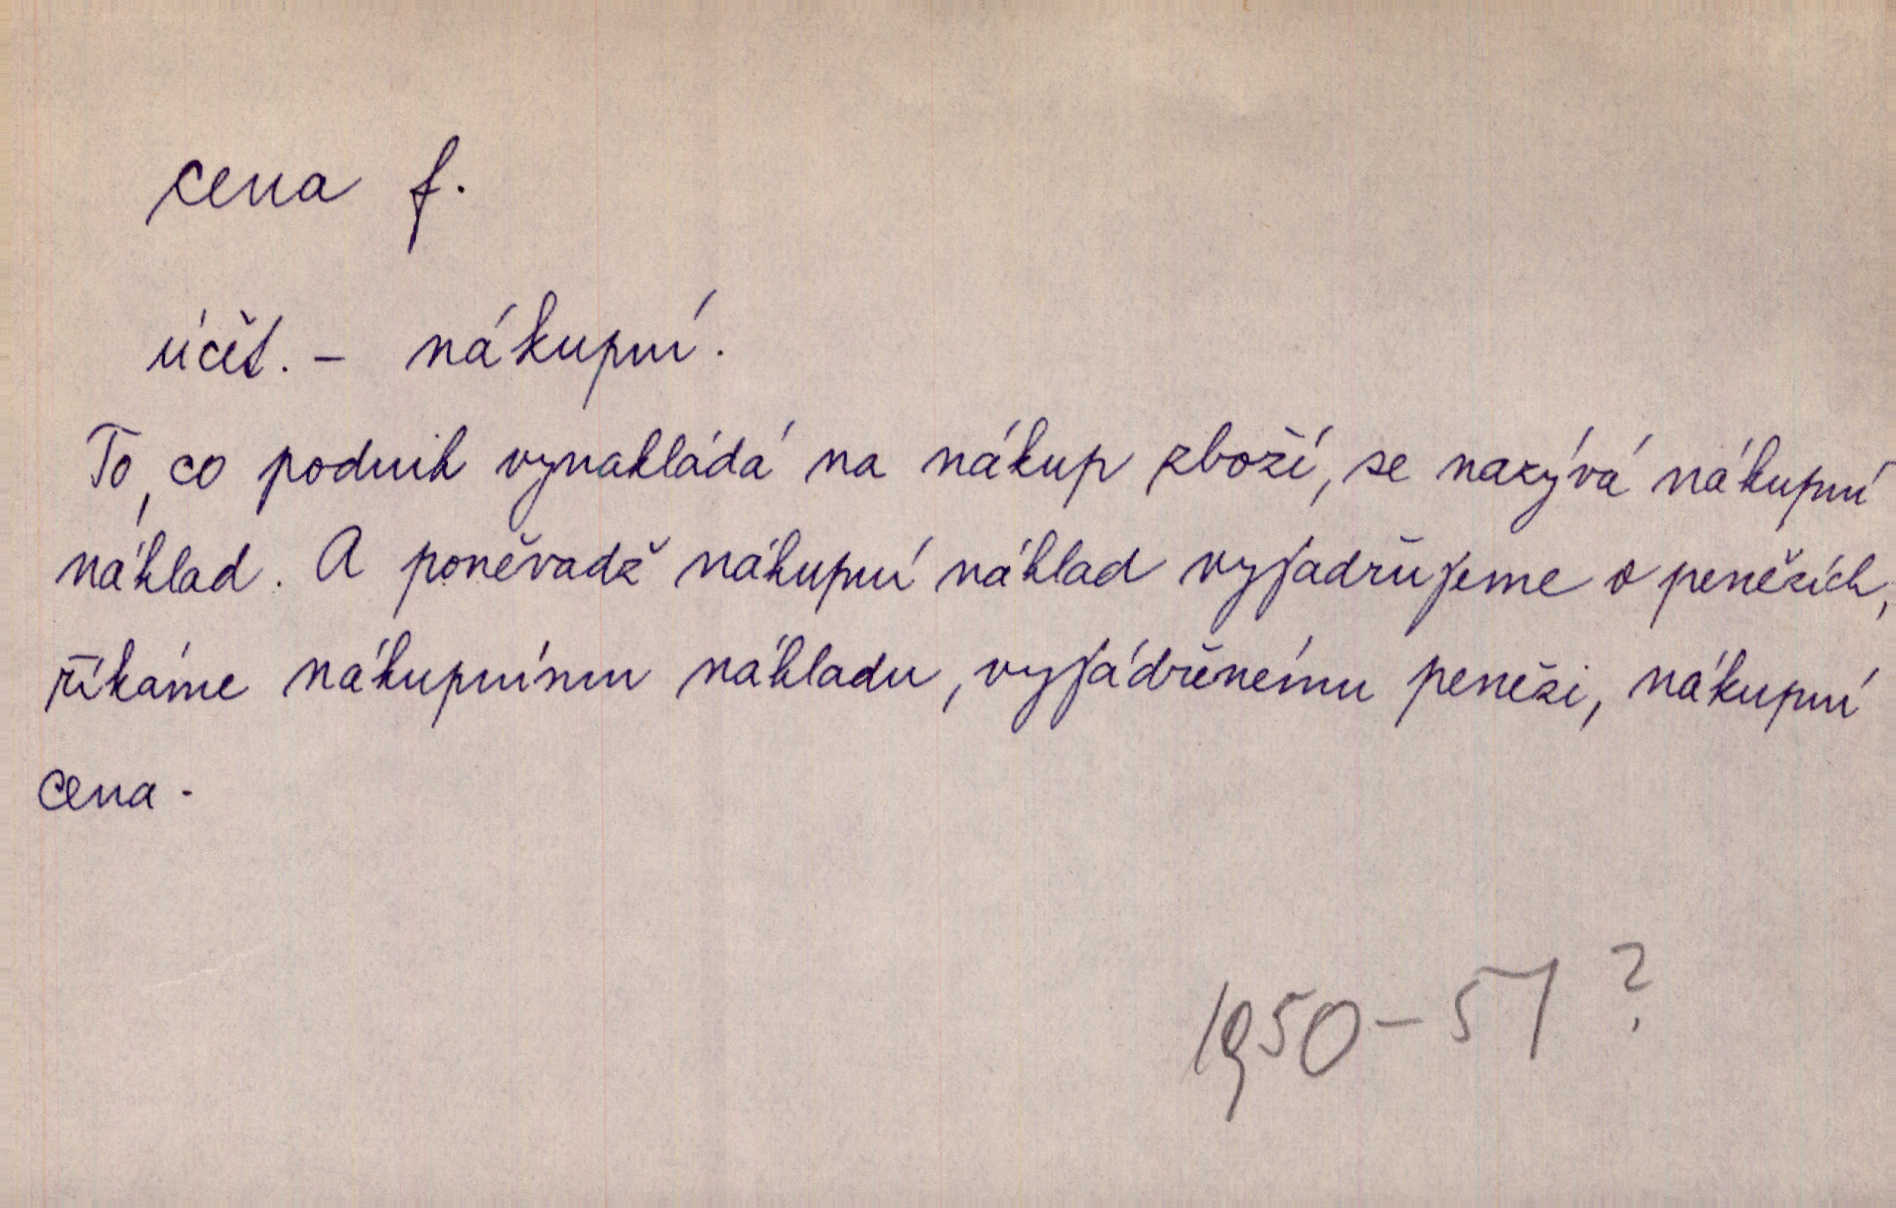 cena f.
účet. - nákupní.
To, co podnik vynakládá na nákup zboží, se nazývá nákupní
náklad. A poněvadž nákupní náklad vyjadřujeme v penězích,
říkáme nákupnímu nákladu, vyjádřenému penězi, nákupní
cena.
1950-51?